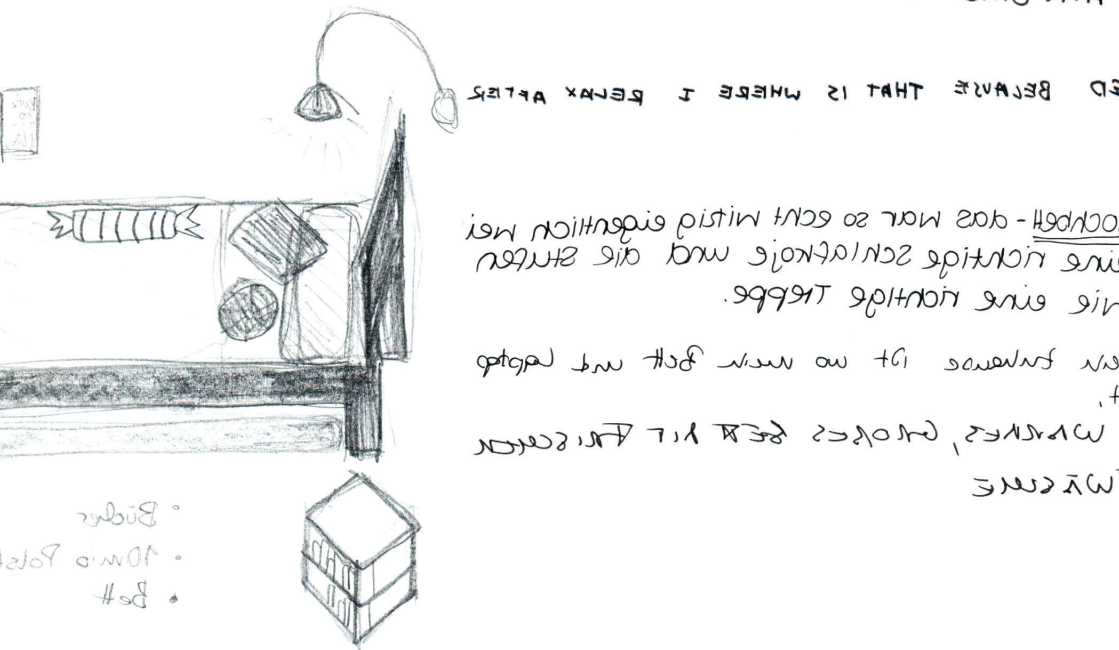 ED BECAUSE THAT IS WHERE I RELAX AFTER
Hochbett - das war so echt witzig eigentlich wei
eine richtige Schlafkoje und die Stufen
wie eine richtige Treppe.
Zuhause ist wo mein Bett und Laptop
t.
WARMES, GROßES BETT MIT FRISCHER
WÄSCHE
• Bücher
• 10mio Polst
• Bett